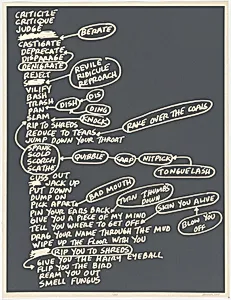 CRITICIZE
CRITIQUE
JUDGE
BERATE
CASTIGATE
DEPRECATE
DISPARAGE
DENIGRATE
REJECT
REVILE
RIDICULE
REPROACH
VILIFY
BASH
TRASH
PAN
SLAM
DISH
DIS
DING
KNOCK
RIP TO SHREDS
REDUCE TO TEARS
JUMP DOWN YOUR THROAT
RAKE OVER THE COALS
SPANK
SCOLD
SCORCH
SCATHE
QUIBBLE
CARP
NITPICK
TONGUELASH
CUSS OUT
JACK UP
PUT DOWN
DUMP ON
PICK APART
BAD MOUTH
TURN THUMBS DOWN
SKIN YOU ALIVE
PIN YOUR EARS BACK
GIVE YOU A PIECE OF MY MIND
TELL YOU WHERE TO GET OFF
DRAG YOUR NAME THROUGH THE MUD
WIPE UP THE FLOOR WITH YOU
BLOW YOU OFF
RIP YOU TO SHREDS
GIVE YOU THE HAIRY EYEBALL
FLIP YOU THE BIRD
REAM YOU OUT
SMELL FUNGUS